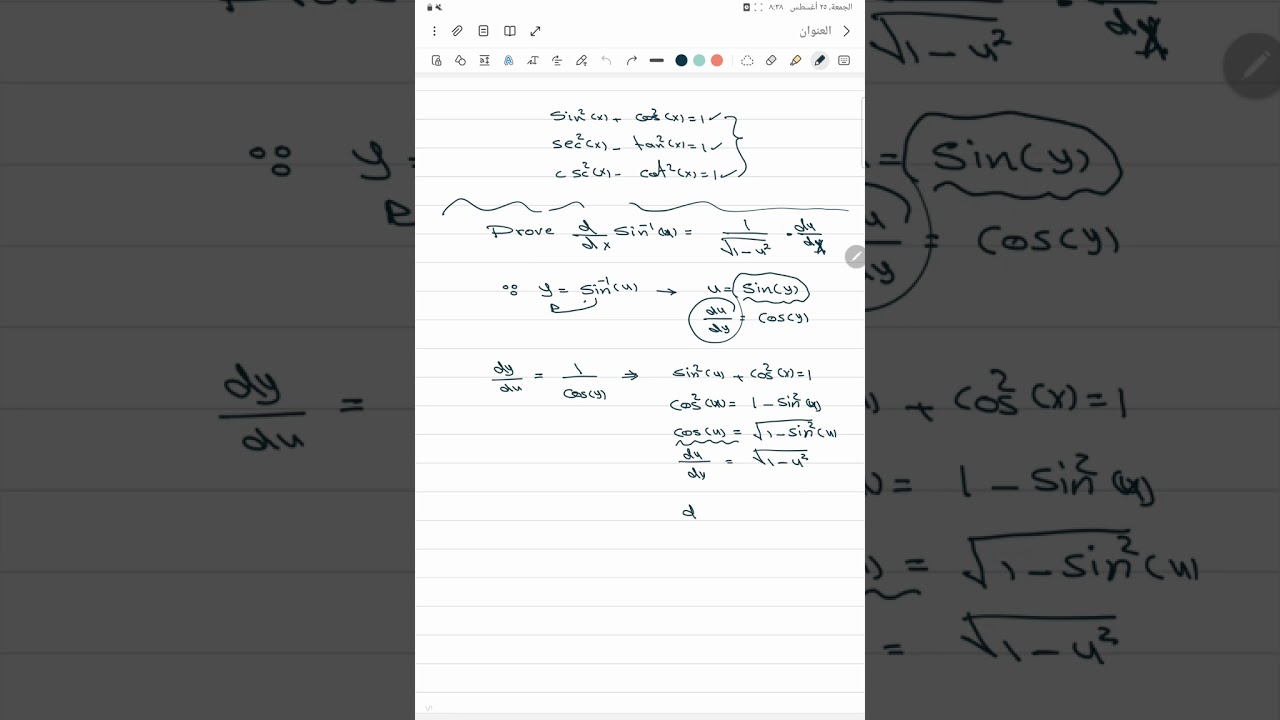 الجمعة، ٢٥ أغسطس ٨:٣٨
العنوان
sin²(x) + cos²(x) = 1 ✓
sec²(x) - tan²(x) = 1 ✓
csc²(x) - cot²(x) = 1 ✓
Prove d/dx sin⁻¹(u) = 1/√1-u² · du/dx
∵ y = sin⁻¹(u) → u = sin(y)
du/dy = cos(y)
dy/du = 1/cos(y) ⇒ sin²(u) + cos²(x) = 1
cos²(u) = 1 - sin²(u)
cos(u) = √1-sin²(u)
du/dy = √1-u²
d